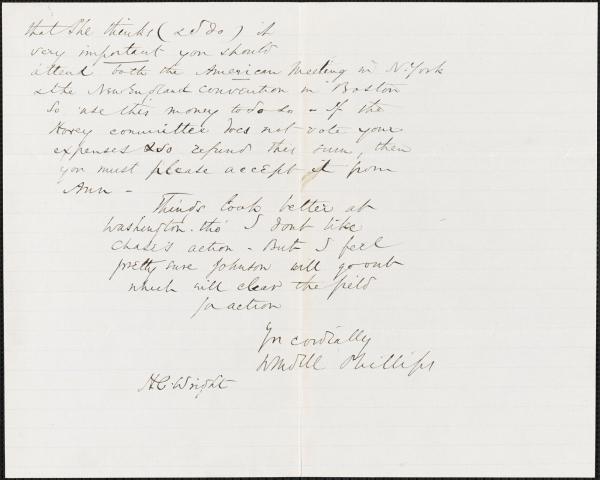 that she thinks (& I do) it
very important you should
attend both the American Meeting in N. York
& the New England convention in Boston
So use this money to do so – If the
Hovey committee does not vote your
expenses & so refund this sum, then
you must please accept it from
Ann –
Things look better at
Washington. tho' I dont like
Chase's action – But I feel
pretty sure Johnson will go out
which will clear the field
for action
Yrs cordially
Wendell Phillips
H. C. Wright